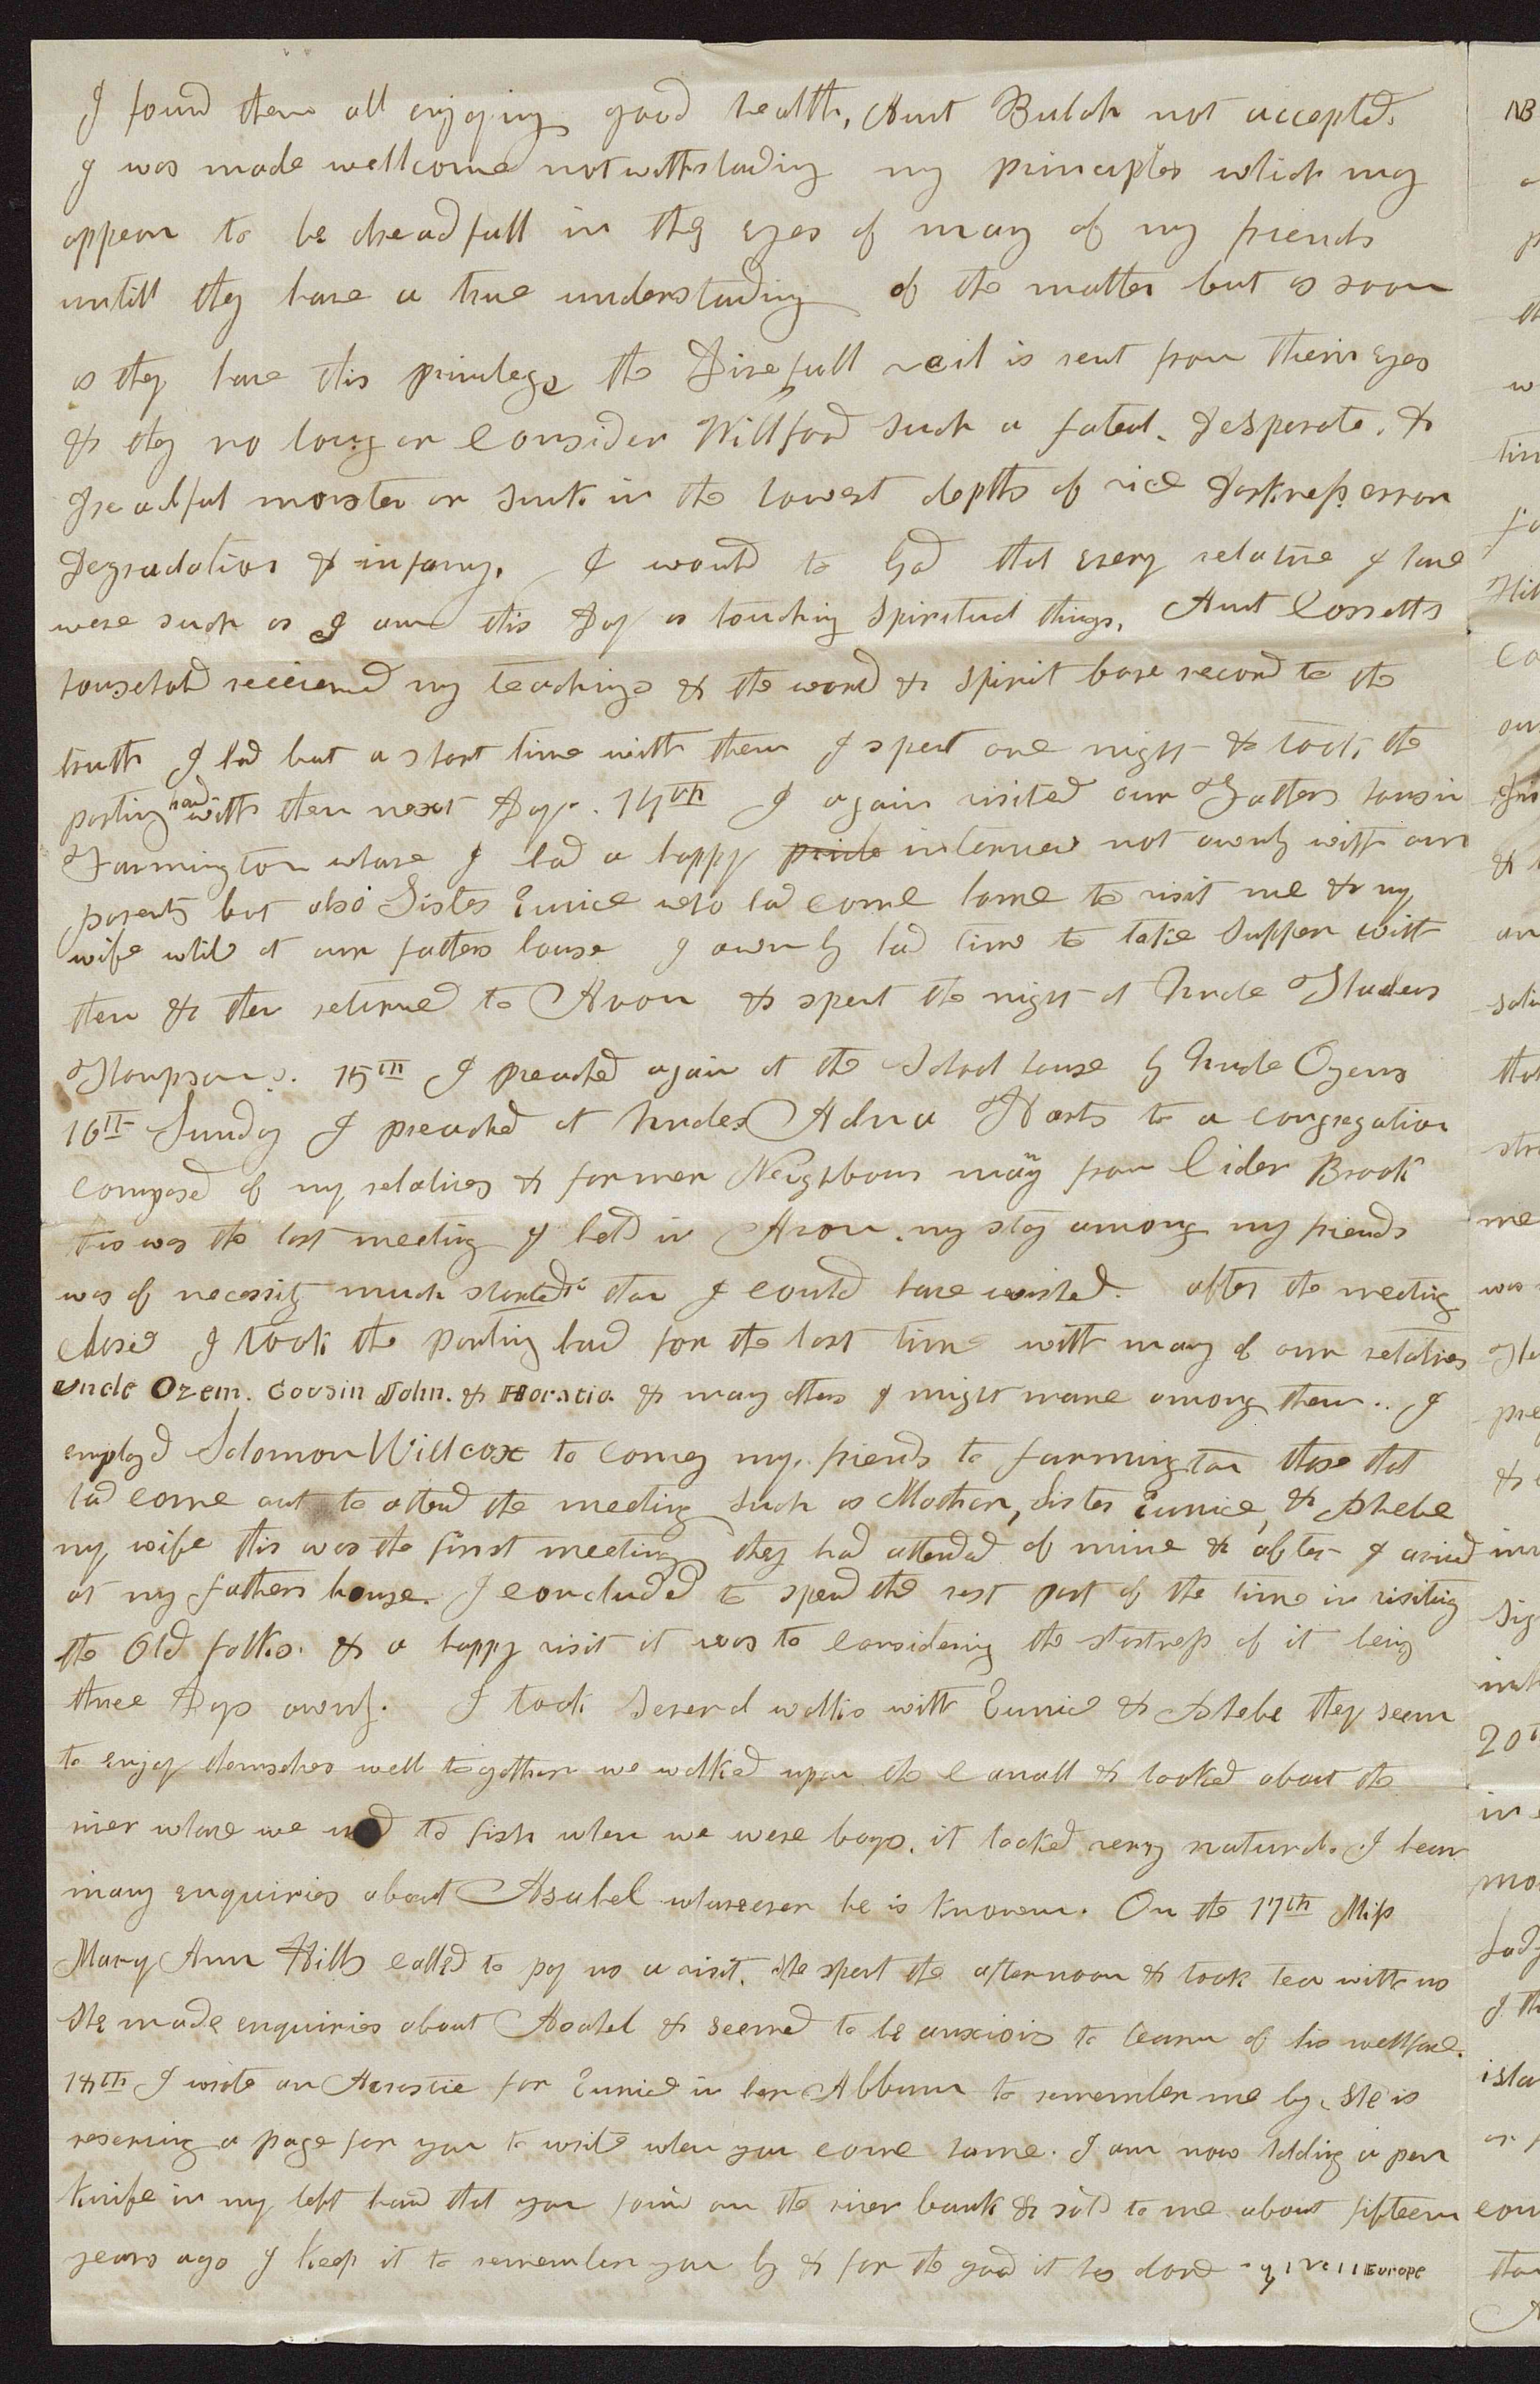 I found them all enjoying good health, Aunt Bulah not accepted.
I was made wellcome notwithstanding my principles which may
appear to be dreadfull in the eyes of many of my friends
untill they have a true understanding of the matter but as soon
as they have this privilege the Direfull vail is rent from their eyes
& they no longer Consider Willford such a fatal, desperate, &
dreadful monster or sunk in the lowest depths of vice Darkness error
Degradation & infamy. I would to God that every relative I have
were such as I am this Day as touching spiritual things, Aunt Cossetts
household received my teachings & the word & spirit bore record to the
truth I had but a short time with them I spent one night & took the
parting hand with them next Day. 14th I again visited our Fathers hous in
Farmington whare I had a happy pride interview not ownly with our
parents but also Sister Eunice who had come home to visit me & my
wife while at our fathers house I ownly had time to take supper with
them & then returned to Avon & spent the night at Uncle
Thompsons. 15th I preached again at the School house by Uncle Ozems
16th Sunday I preached at Uncles Adna Harts to a congregation
composed of my relatives & former Neighbours many from Cider Brook
this was the last meeting I held in Avon. my stay among my friends
was of necessity much shorter than I could have wished. after the meeting
closed I took the parting hand for the last time with many of our relatives
Uncle Ozem. Cousin John. & Horatio. & many others I might name among them.. I
employd Solomon Willcox to convey my friends to farmington those that
had come out to attend the meeting such as Mother, Sister Eunice, & Phebe
my wife this was the first meeting they had attended of mine & after I arived
at my fathers house. I concluded to spend the rest part of the time in visiting
the Old folks. & a happy visit it was to considering the shortness of it being
three Days ownly. I took several walks with Eunice & Phebe they seem
to enjoy themselves well together we walked upon the canall & looked about the
river whare we used to fish when we were boys. it looked very natural. I hear
many enquiries about Asahel whareever he is known. On the 17th Miss
Mary Ann Hills called to pay us a visit. she spent the afternoon & took tea with us
she made enquiries about Asahel & seemed to be anxious to learn of his wellfare.
18th I wrote an Acrostic for Eunice in her Albbum to remember me by. she is
reserving a page for you to write when you come home. I am now holding a pen
knife in my left hand that you found on the river bank & sold to me about fifteen
years ago I keep it to remember you by & for the good it has done Europe
NB